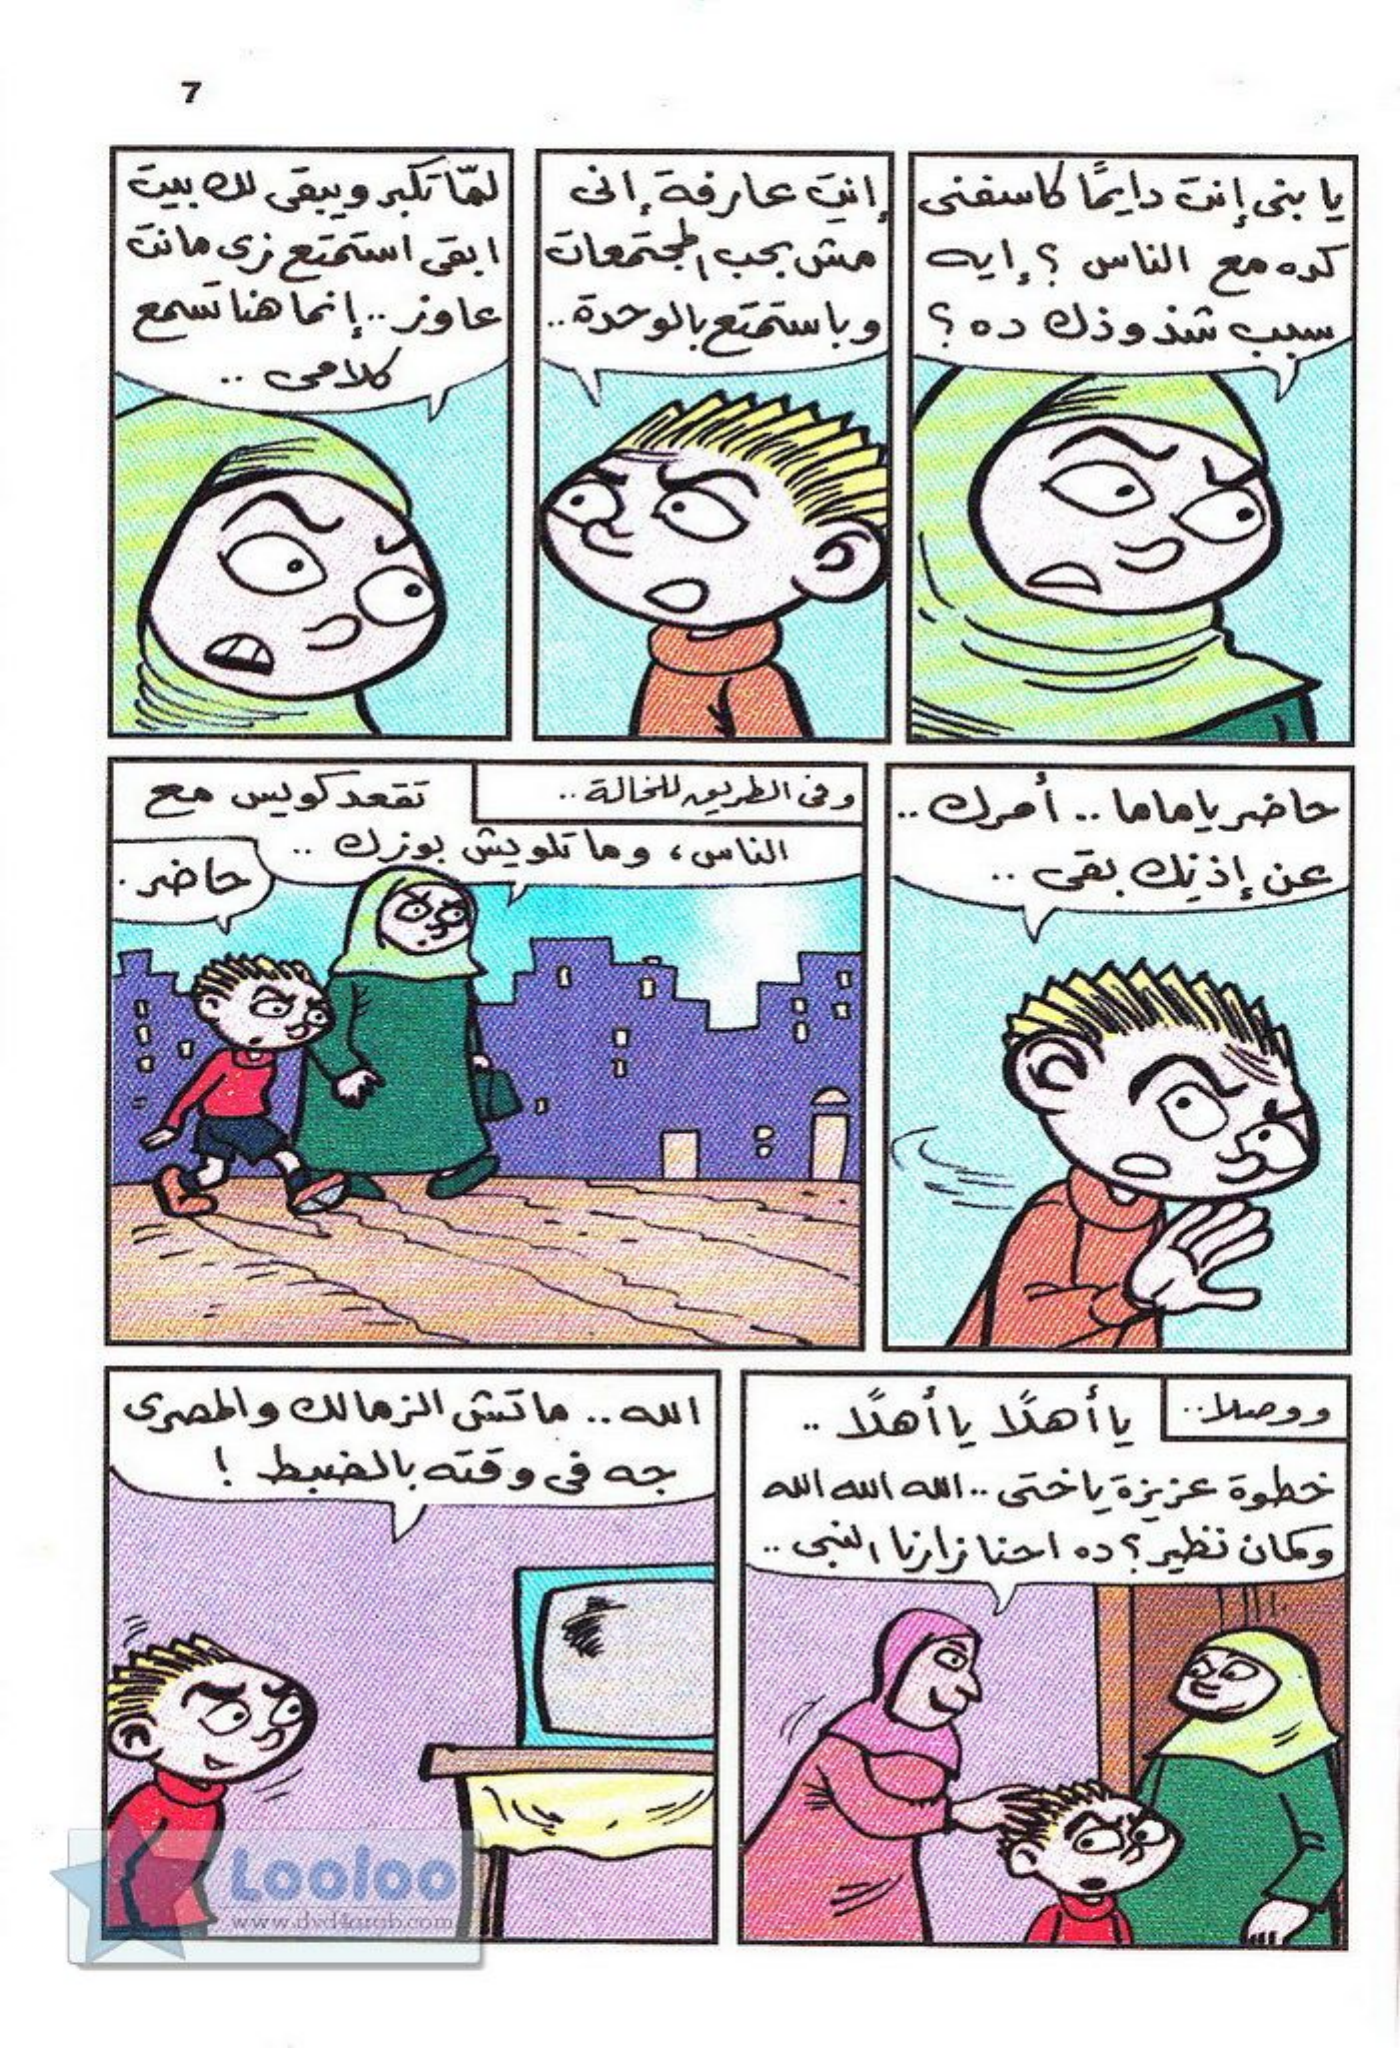 7
يا بنى إنت دايمًا كاسفنى
كده مع الناس ؟ إيه
سبب شذوذك ده ؟
إنتِ عارفة إنى
مش بحب المجتمعات
وباستمتع بالوحدة ..
لمّا تكبر ويبقى لك بيت
ابقى استمتع زى ما انت
عاوز .. إنما هنا تسمع
كلامى ..
حاضر يا ماما .. أمرك ..
عن إذنك بقى ..
وفى الطريق للخالة ..
تقعد كويس مع
الناس ، وما تلويش بوزك ..
حاضر .
ووصلا ..
يا أهلًا يا أهلًا ..
خطوة عزيزة يا ختى .. الله الله الله
وكمان نظير ؟ ده احنا زارنا النبى ..
الله .. ماتش الزمالك والمصرى
جه فى وقته بالضبط !
Looloo
www.dvd4arab.com